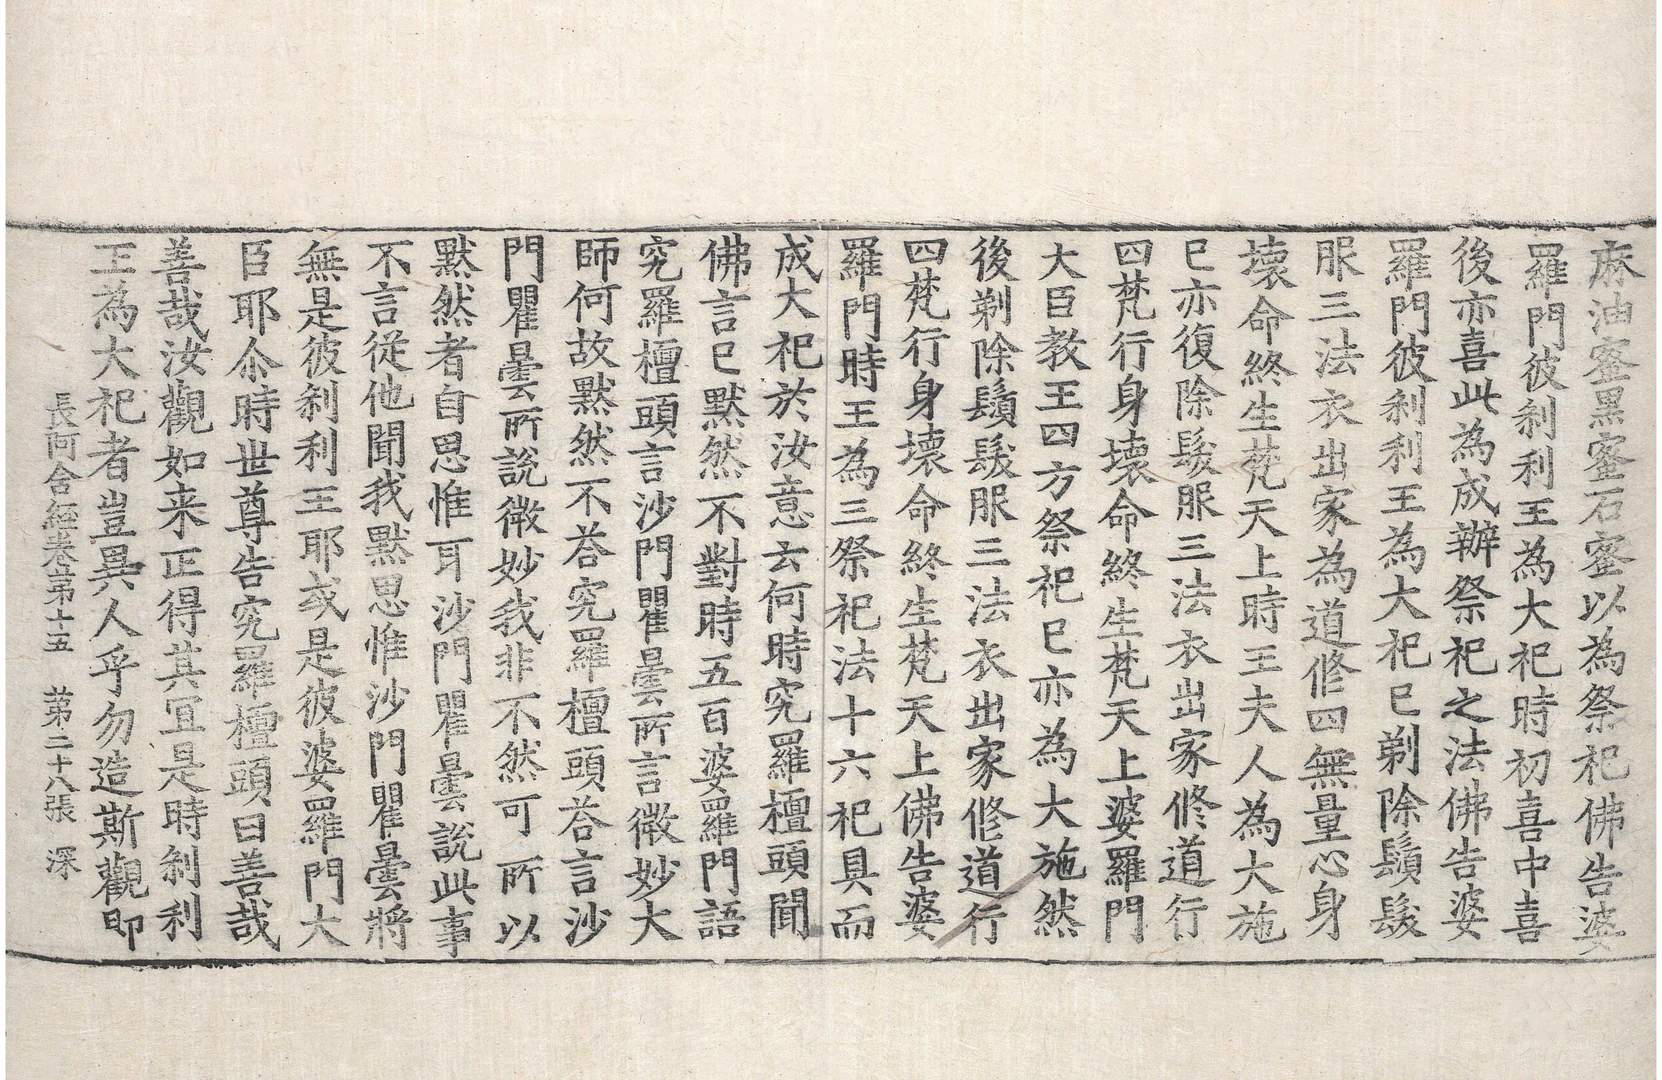 麻油蜜黒蜜石蜜以為祭祀佛告婆
羅門彼刹利王為大祀時初喜中喜
後亦喜此為成辦祭祀之法佛告婆
羅門彼刹利王為大祀已剃除鬚髮
服三法衣出家為道修四無量心身
壞命終生梵天上時王夫人為大施
已亦復除髮服三法衣出家修道行
四梵行身壞命終生梵天上婆羅門
大臣教王四方祭祀已亦為大施然
後剃除鬚髮服三法衣出家修道行
四梵行身壞命終生梵天上佛告婆
羅門時王為三祭祀法十六祀具而
成大祀於汝意云何時究羅檀頭聞
佛言已默然不對時五百婆羅門語
究羅檀頭言沙門瞿曇所言微妙大
師何故默然不荅究羅檀頭荅言沙
門瞿曇所說微妙我非不然可所以
默然者自思惟耳沙門瞿曇說此事
不言從他聞我默思惟沙門瞿曇將
無是彼刹利王耶或是彼婆羅門大
臣耶尒時世尊告究羅檀頭曰善哉
善哉汝觀如来正得其冝是時刹利
王為大祀者豈異人乎勿造斯觀即
長阿含經卷第十五　第二十八張　深